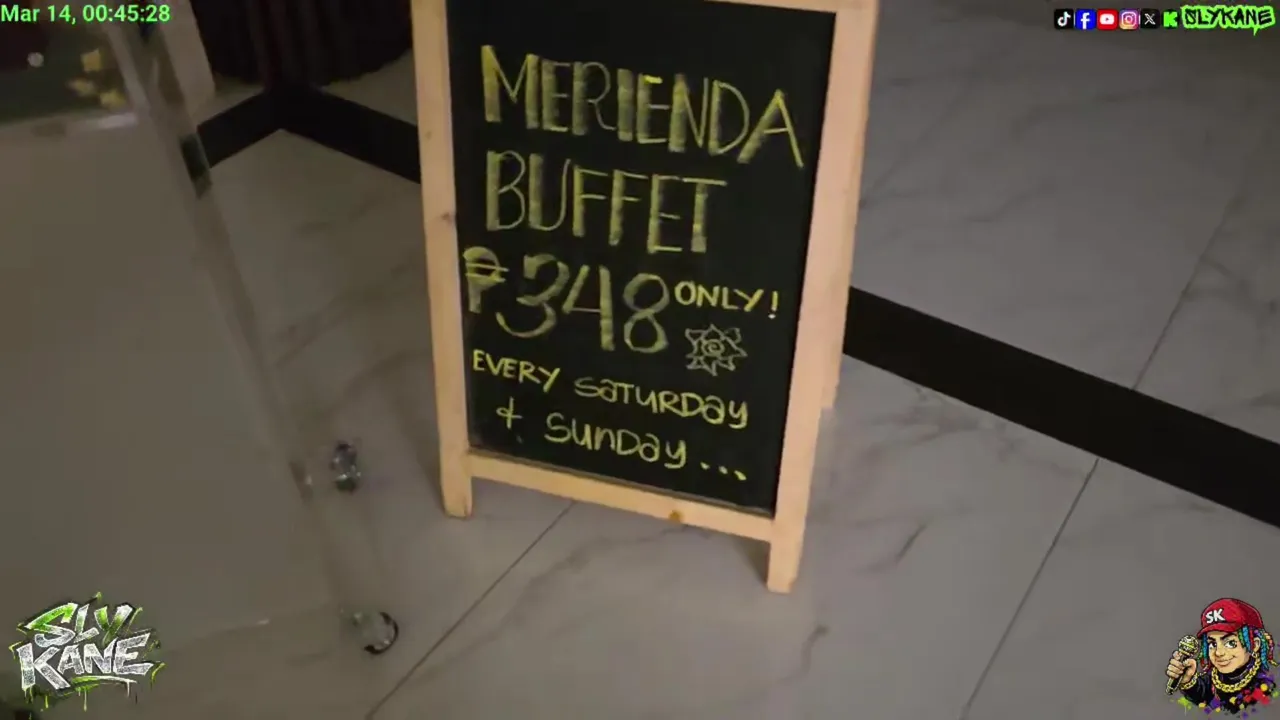 Mar 14, 00:45:28
SLYKANE
MERIENDA
BUFFET
₱348 ONLY!
EVERY SATURDAY
& SUNDAY...
SLY
KANE
SK